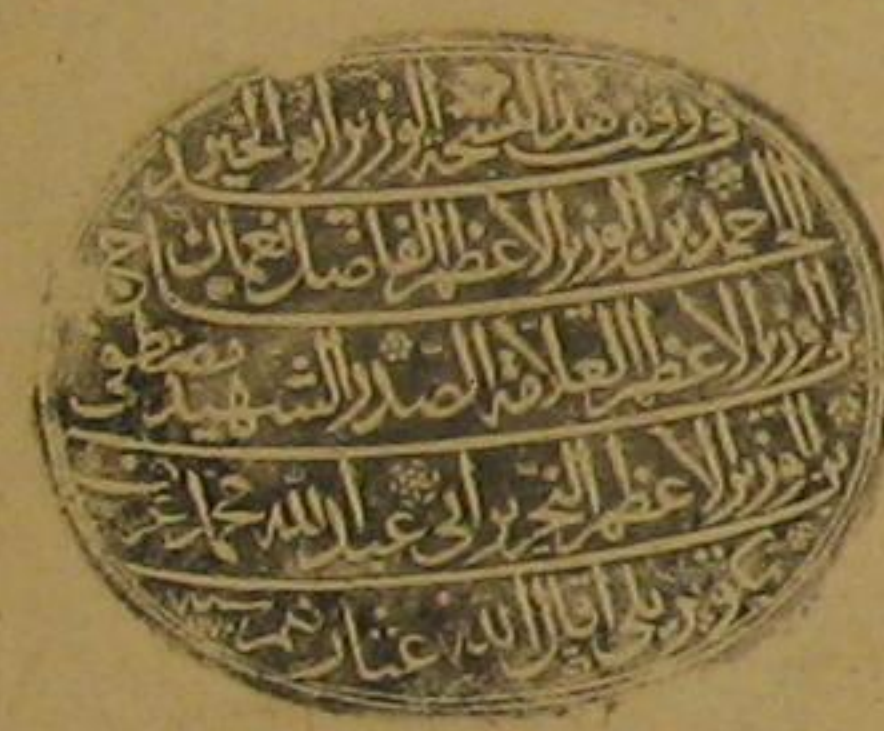 قد وقف هذه النسخة الوزير ابو الخير
الحاج احمد بن الوزير الاعظم الفاضل نعمان
بن الوزير الاعظم العلامة الصدر الشهيد مصطفى
بن الوزير الاعظم النحرير ابى عبد الله محمد عرف
بكوپريلى اقال الله عثارهم